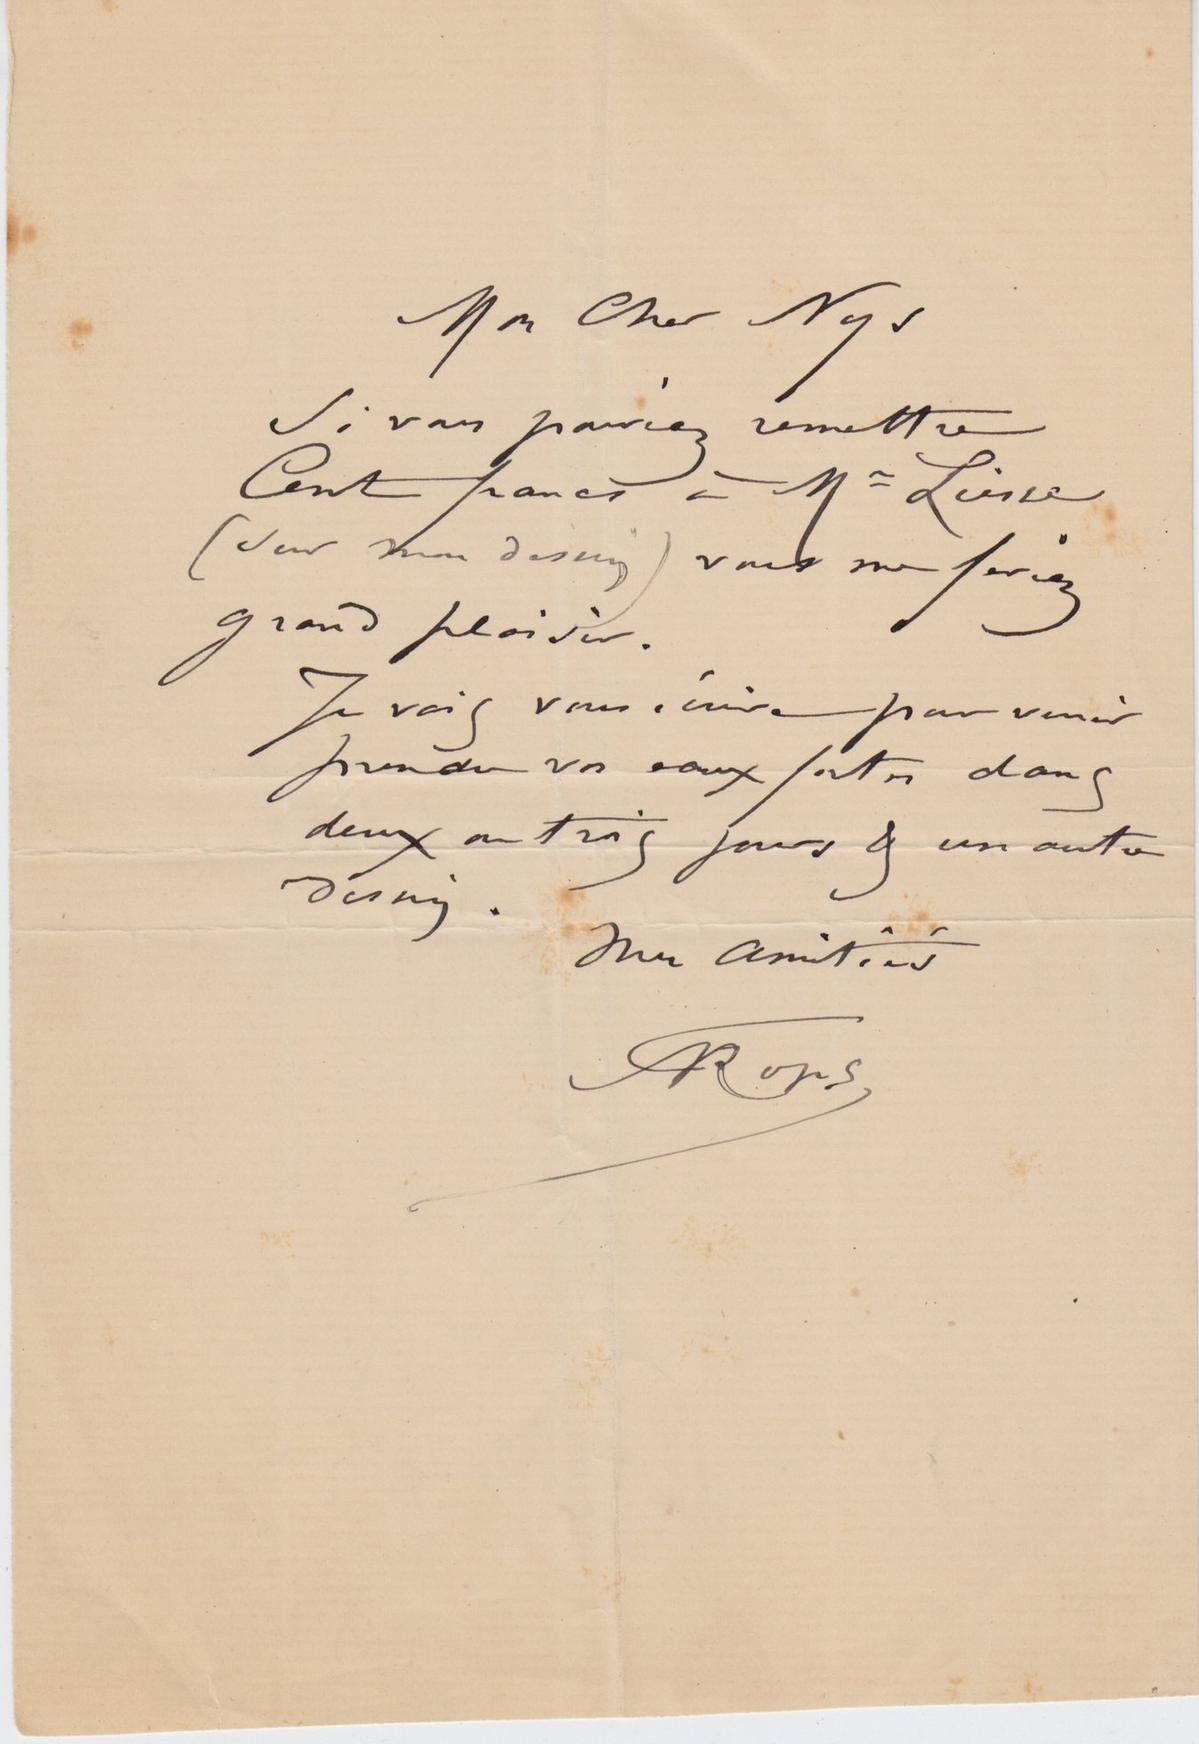 Mon Cher Nys
Si vous pouviez remettre
Cent francs à M= Liesse
(sur mon dessin) vous me feriez
grand plaisir.
Je vais vous écrire pour venir
prendre vos eaux fortes dans
deux ou trois jours & un autre
dessin.
Mes amitiés
FRops